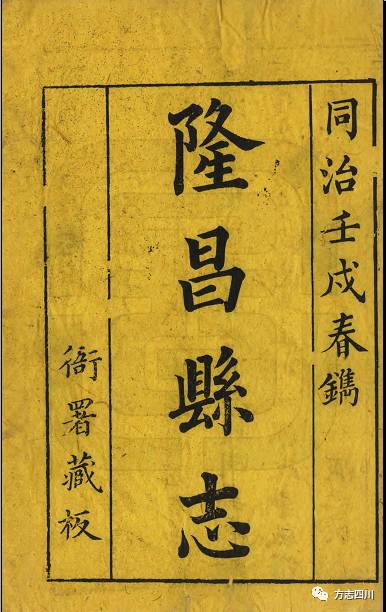 同治壬戌春鐫
隆昌縣志
衙署藏板
方志四川